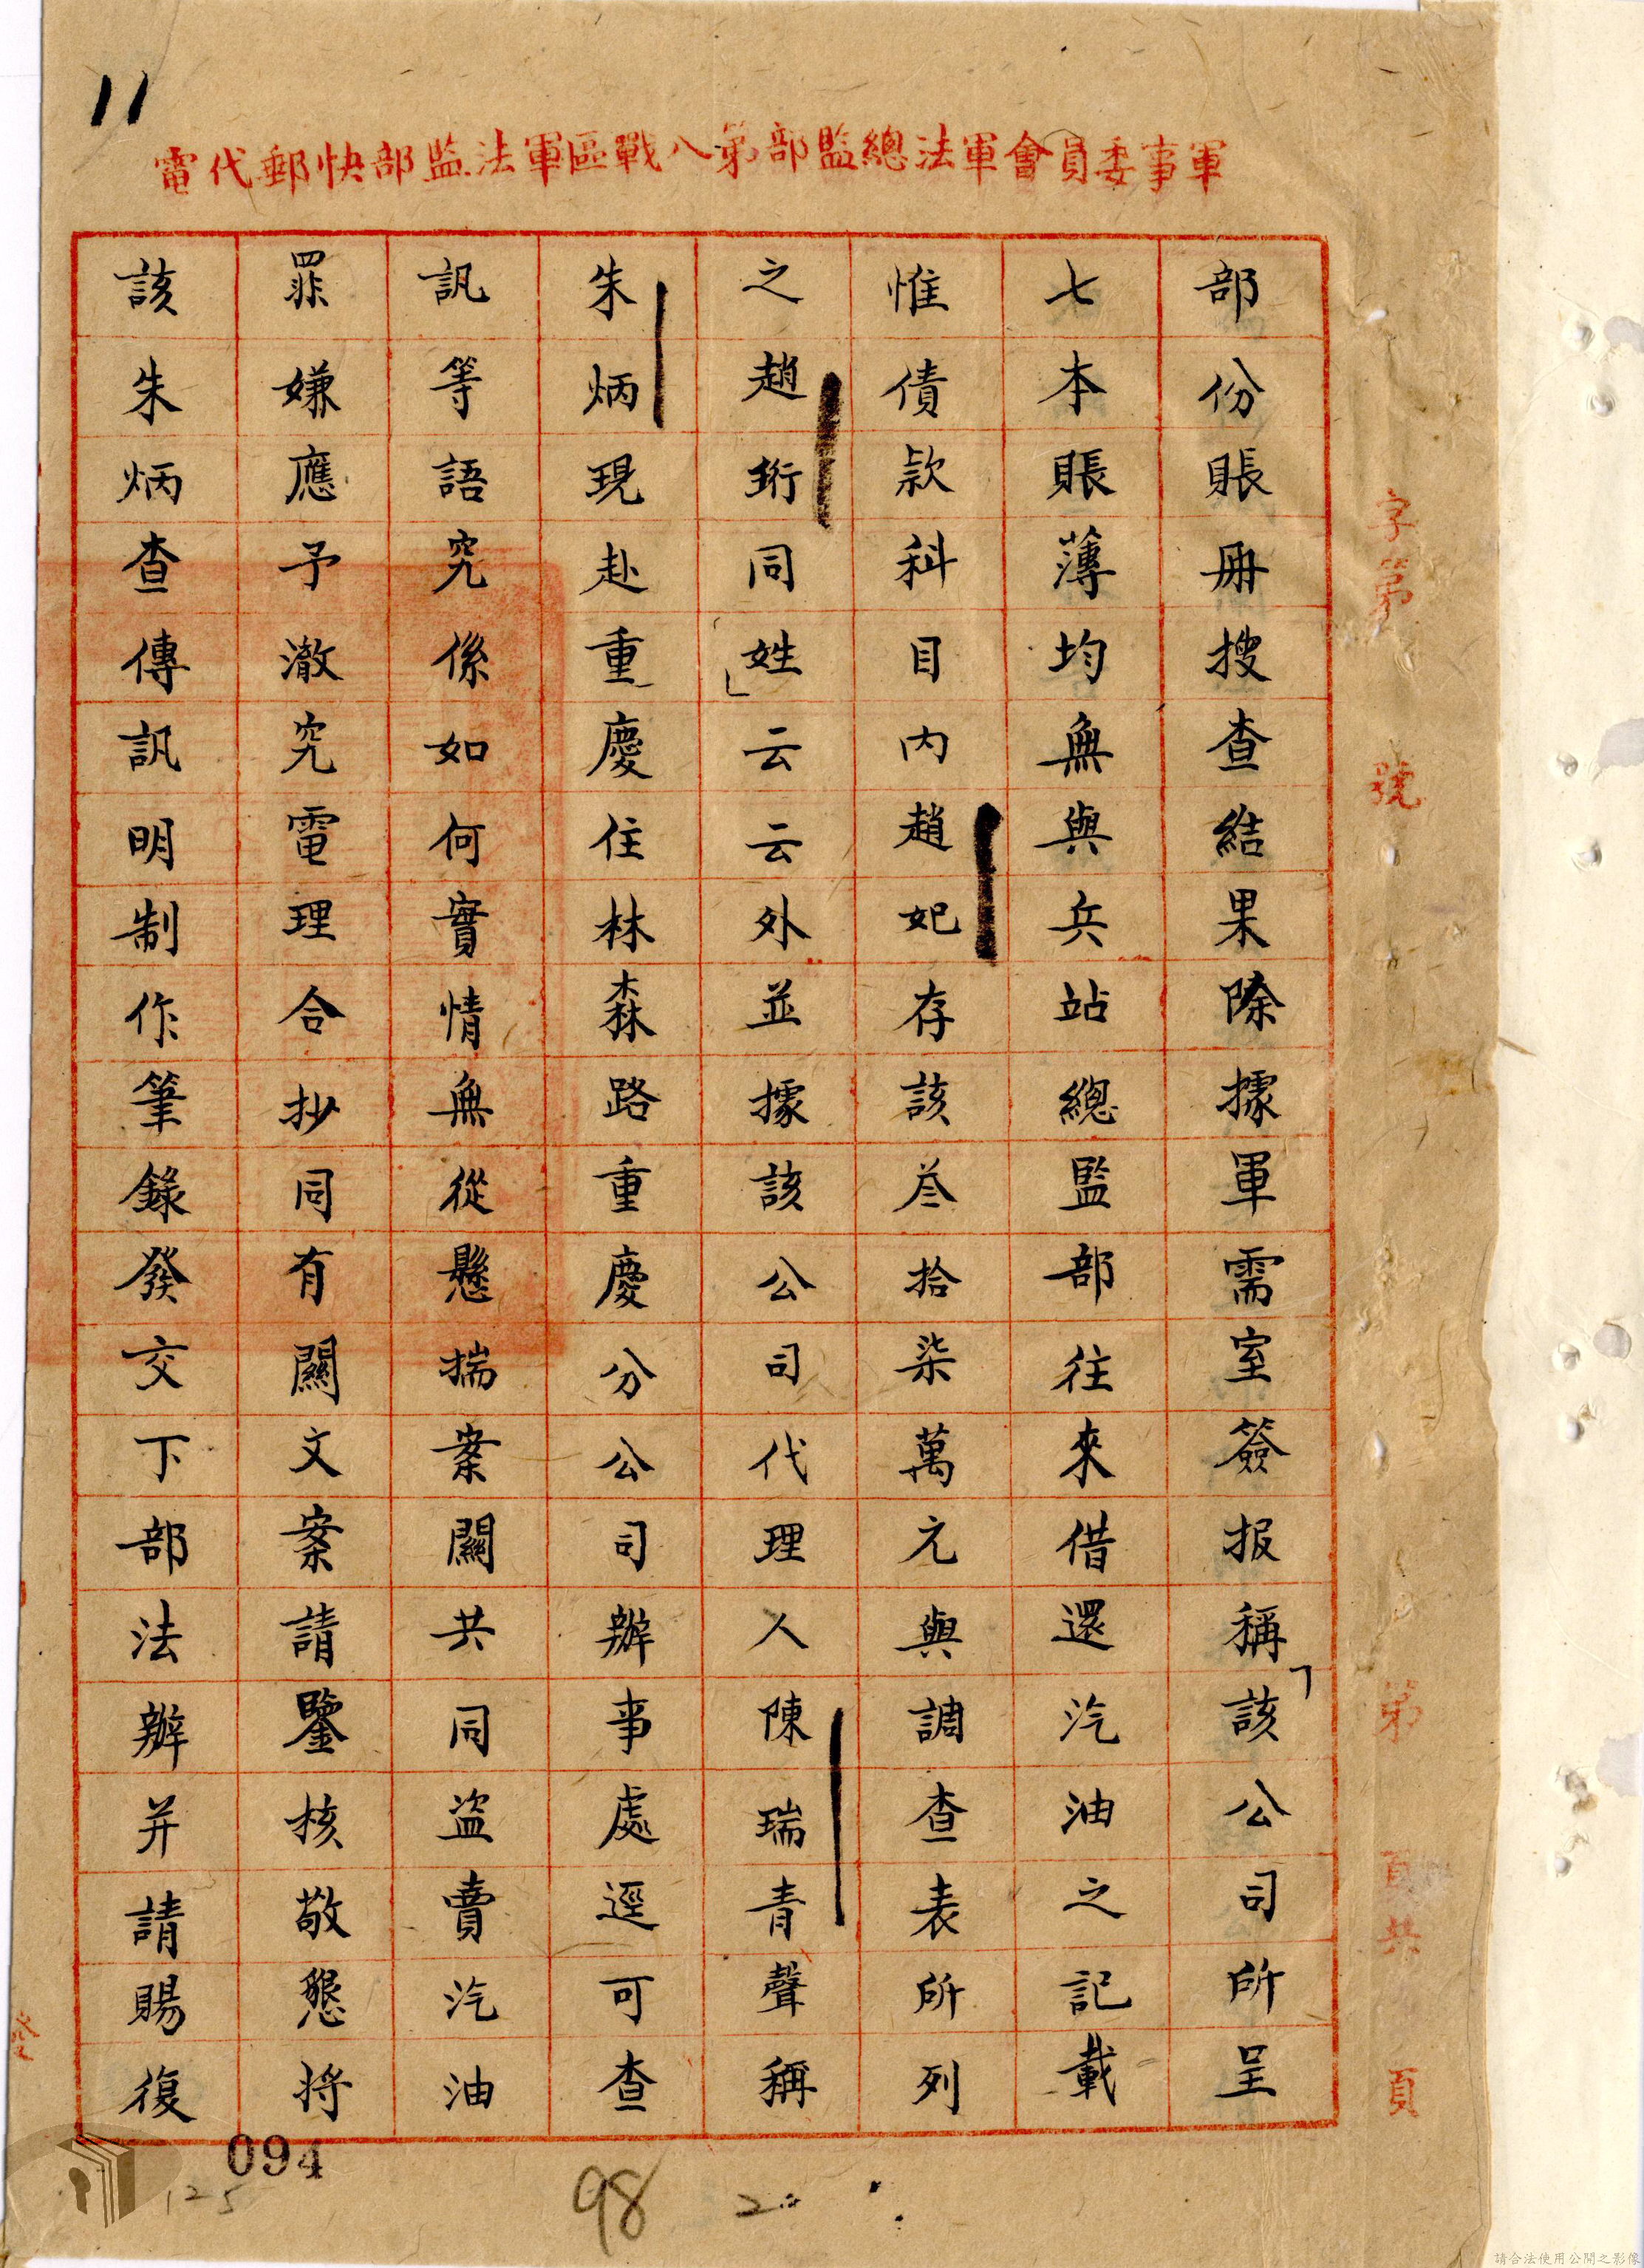 11
軍事委員會軍法總監部第八戰區軍法監部快郵代電
字第 號 第 頁共 頁
部份賬冊搜查結果除據軍需室簽报稱「該公司所呈
七本賬薄均無與兵站總監部往來借還汽油之記載
惟債款科目內趙妃存該叁拾柒萬元與調查表所列
之趙珩同姓」云云外並據該公司代理人陳瑞青聲稱
朱炳現赴重慶住林森路重慶分公司辦事處逕可查
訊等語究係如何實情無從懸揣案關共同盜賣汽油
罪嫌應予澈究電理合抄同有關文案請鑒核敬懇將
該朱炳查傳訊明制作筆錄發交下部法辦并請賜復
094
125
98
請合法使用公開之影像